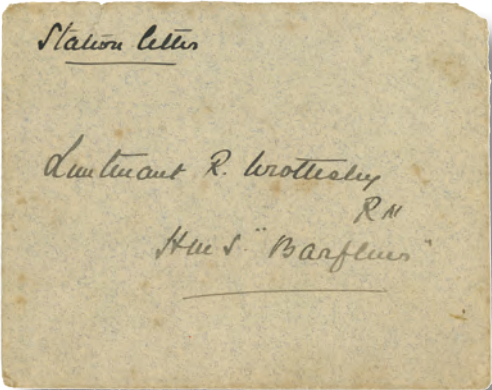 Station letter
Lieutenant R. Wrottesley
RN
H.M.S. "Barfleur"